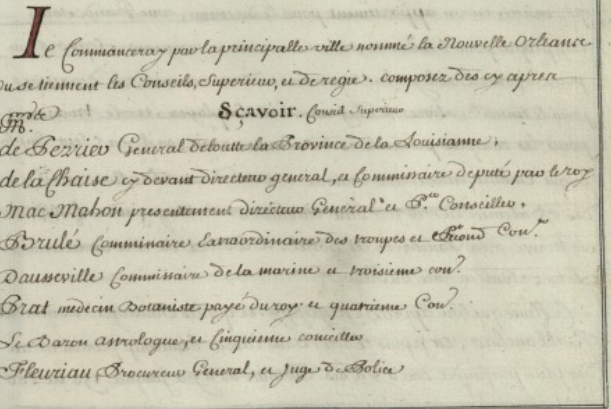 Je Commanceray par la principalle ville nommé la Nouvelle Orleance
ou se tiennent les Conseils, Superieur, et de regie. composez des cy apres
Sçavoir. Conseil Superieur
Mrs.
de Perrier General de toutte la Province de la Louisianne,
de la Chaise cy devant directeur general, et Commissaire deputé par le roy
Mac Mahon presentement directeur General et Pr. Conseiller,
Brulé Comminaire Extraordinaire des troupes et Second Conr.
Dausseville Commissaire de la marine et troisieme conr.
Prat medecin Botaniste payé du roy et quatrieme Conr.
Le Baron astrologue, et Cinquieme conceiller
Fleuriau Procureur General, et Juge de Police